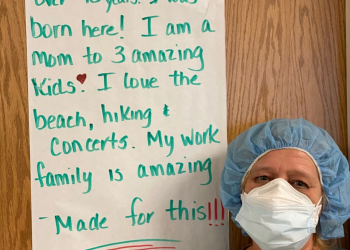 over 15 years. I was
born here! I am a
mom to 3 amazing
Kids♥! I love the
beach, hiking &
concerts. My work
family is amazing
- Made for this!!!